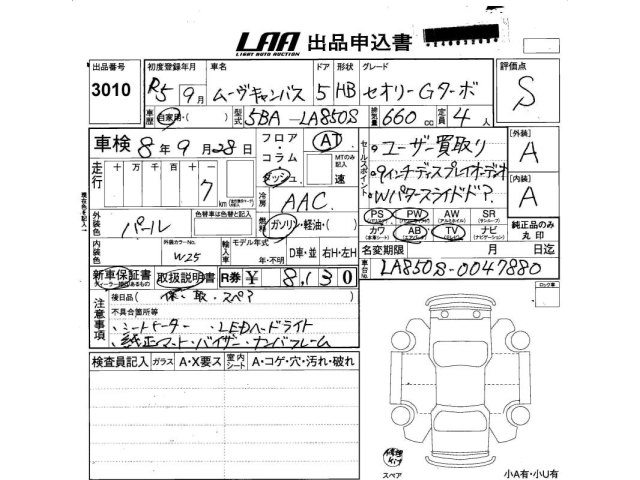 LAA 出品申込書
LIGHT AUTO AUCTION
出品番号 初度登録年月 車名 ドア 形状 グレード 評価点
3010 R5 9月 ムーヴキャンバス 5 HB セオリーGターボ S
車歴 自家用・( ) 型式 5BA-LA850S 排気量 660cc 定員 4人
車検 8年9月28日 フロア・コラム・ダッシュ AT MTのみ記入 速
セールスポイント
・ユーザー買取り
・9インチディスプレイオーディオ
・Wパワースライドド?
[外装] A
[内装] A
走行 十万 万 千 百 十 一 7 km
冷房 AAC
燃料 ガソリン・軽油・( )
PS PW AW SR
カワ AB TV ナビ
(革シート) (エアバック) (テレビ) (ナビゲーション)
純正品のみ丸印
外装色 パール 色替車は色替と記入
内装色 外装カラーNo. W25
輸入車 モデル年式 年・不明 D車・並 右H・左H
名変期限 月 日迄
車台No. LA850S-0047880
新車保証書 取扱説明書 R券 ¥ 8,130
ディーラー印のあるもの
注意事項 後日品( 保、取、スペア )
不具合箇所等
・シートヒーター ・LEDヘッドライト
・純正マット・バイザー・ナンバーフレーム
検査員記入 ガラス A・X要ス 室内シート A・コゲ・穴・汚れ・破れ
現在色を記入
ロック車
修理kit
スペア
小A有・小U有